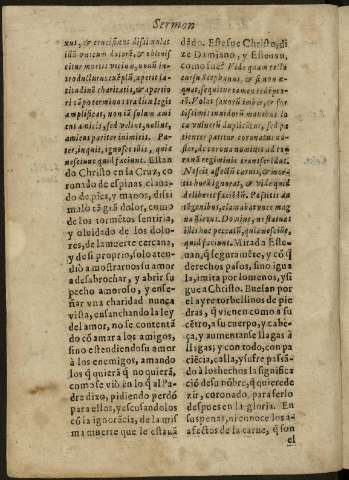 Sermon
xus, & crucifixus dissimulat
suũ vacum dolorē, & oblivis
citur mortis vicinæ, novũ in-
troducit urus exēplũ, aperit la-
titudinē charitatis, & aperio
ri cãpo terminos tradita legis
amplificat, non iã solum ami
cos amicis, sed volunt, nolint,
amicus pariter inimicis. Pa-
ter, inquit, ignosce illis, quia
nesciunt quid faciunt. Estan
do Christo en la Cruz, co
ronado de espinas, claua-
do de pies, y manos, dissi
mulò tã grã dolor, como
de los tormẽtos sentiria,
y oluidado de los dolo-
res, de la muerte cercana,
y de si proprio, solo aten-
diò a mostrarnos su amor
a desabrochar, y abrir su
pecho amoroso, y ense-
ñar vna charidad nunca
vista, ensanchando la ley
del amor, no se contentã
do cõ amar a los amigos,
sino estendiendo su amor
à los enemigos, amando
los q̃ quierã q̃ no quierã,
como se viò en lo q̃ al Pa
dre dixo, pidiendo perdó
para ellos, y escusandolos
cõ la ignorãcia, de la mis
ma muerte que le estauã
dãdo. Este fue Christo, di
ze Damiano, y Esteuan,
como fue? Vide quam recta
Stephanus, & si non æ-
quat, sequitur tamen redẽpto-
rē. Volat saxorũ imber, & for
tissimi undidorũ manibus lo
ca vulnerũ duplicatur, sed pa
tienter patitur coronatur no-
mine, de corona nominis ad co-
ronã regiminis transferendus.
Nescit affectũ carnis, & mor-
tis sua ignorat, & vide quid
deliberet charitas. Positis au
tẽ genibus, clamabat voce mag
na dicens. Domine, ne statuas
illis hoc peccatũ, quia nesciũt,
quid faciunt. Mirad a Este-
uan, q̃ seguramẽte, y cõ q̃
derechos passos, sino igua
la, imita por lo menos, y si
gue a Christo. Buelan por
el ayre toruellinos de pie
dras, q̃ vienen como a su
cẽtro, a su cuerpo, y cabe-
ça, y aumentanse llagas à
llagas; y con todo, con pa
ciẽcia, calla, y sufre passã-
do à los hechos la significa
ciõ de su nõbre, q̃ quierede
zir, coronado, para serlo
despues en la gloria. En
suspensas, ni conoce los a-
afectos de la carne, q̃ son
el